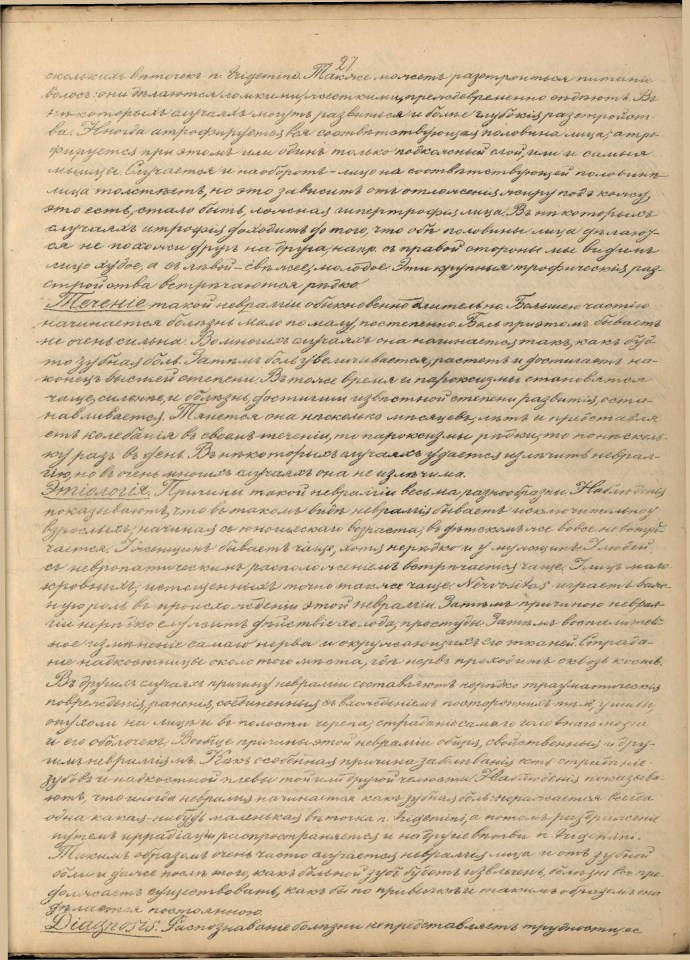 27
скольких вѣточек n. trigemini. Также можетъ разстроиться питаніе
волосъ: они дѣлаются ломкими, жесткими, преждевременно сѣдѣютъ. Въ
нѣкоторыхъ случаяхъ могутъ развиться и болѣе глубокія разстройст-
ва. Иногда атрофируется вся соотвѣтствующая половина лица; атро-
фируется при этомъ или одинъ только подкожный слой, или и самыя
мышцы. Случается и наоборотъ – лицо на соотвѣтствующей половинѣ
лица толстѣетъ, но это зависитъ отъ отложенія жиру подъ кожу,
это есть, стало быть, ложная гипертрофія лица. Въ нѣкоторыхъ
случаяхъ атрофія доходитъ до того, что обѣ половины лица дѣлают-
ся не похожи другъ на друга, напр. съ правой стороны мы видимъ
лицо худое, а съ лѣвой – свѣжее, молодое. Эти крупныя трофическія раз
стройства встрѣчаются рѣдко.
Теченіе такой невралгіи обыкновенно длительно. Большею частію
начинается болѣзнь мало по малу, постепенно. Боль при этомъ бываетъ
не очень сильна. Во многихъ случаяхъ она начинается такъ, какъ буд-
то зубная боль. Затѣмъ боль увеличивается, растетъ и достигаетъ на-
конецъ высшей степени. Въ тоже время и пароксизмы становятся
чаще, сильнѣе, и болѣзнь, достигши извѣстной степени развитія, оста-
навливается. Тянется она нѣсколько мѣсяцевъ, лѣтъ и представля
етъ колебанія въ своемъ теченіи, то пароксизмы рѣдки, то по нѣсколь-
ку разъ въ день. Въ нѣкоторыхъ случаяхъ удается излѣчить неврал-
гію, но въ очень многихъ случаяхъ она не излѣчима.
Этіологія. Причины такой невралгіи весьма разнообразны. Наблюденія
показываютъ, что въ такомъ видѣ невралгія бываетъ исключительно у
взрослыхъ, начиная съ юношескаго возраста; въ дѣтскомъ же вовсе не встрѣ-
чается. У женщинъ бываетъ чаще, хотя нерѣдко и у мужчинъ. У людей
съ невропатическимъ расположеніемъ встрѣчается чаще. У лицъ мало
кровныхъ, истощенныхъ точно также чаще. Nervositas играетъ важ-
ную роль въ происхожденіи этой невралгіи. Затѣмъ причиною неврал-
гіи нерѣдко служитъ дѣйствіе холода, простуды. Затѣмъ воспалитель-
ное измѣненіе самаго нерва и окружающихъ его тканей. Страда-
ніе надкостницы около того мѣста, гдѣ нервъ проходитъ сквозь кость.
Въ другихъ случаяхъ причину невралгіи составляютъ нерѣдко травматическія
поврежденія, раненія, соединенныя съ влоченіемъ постороннихъ тѣлъ, ушибы,
опухоли на лицѣ и въ полости черепа; страданіе самаго головнаго мозга
и его оболочекъ. Вообще причины этой невралгіи общія, свойственныя и дру-
гимъ невралгіямъ. Какъ особенная причина заболѣванія есть страданіе
зубовъ и надкостной плевы той или другой челюсти. Наблюденія показыва-
ютъ, что иногда невралгія начинается какъ зубная боль: поражается всегда
одна какая-нибудь маленькая вѣточка n. trigemini, а потомъ раздраженіе
путемъ иррадіаціи распространяется и на другіе вѣтви n. trigemini.
Такимъ образомъ очень часто случается невралгія лица и отъ зубной
боли и даже послѣ того, какъ больной зубъ будетъ извлеченъ, болѣзнь все про-
должаетъ существовать, какъ бы по привычкѣ и такимъ образомъ она
дѣлается постоянною.
Diagnosis. Распознаваніе болѣзни не представляетъ трудности; ее